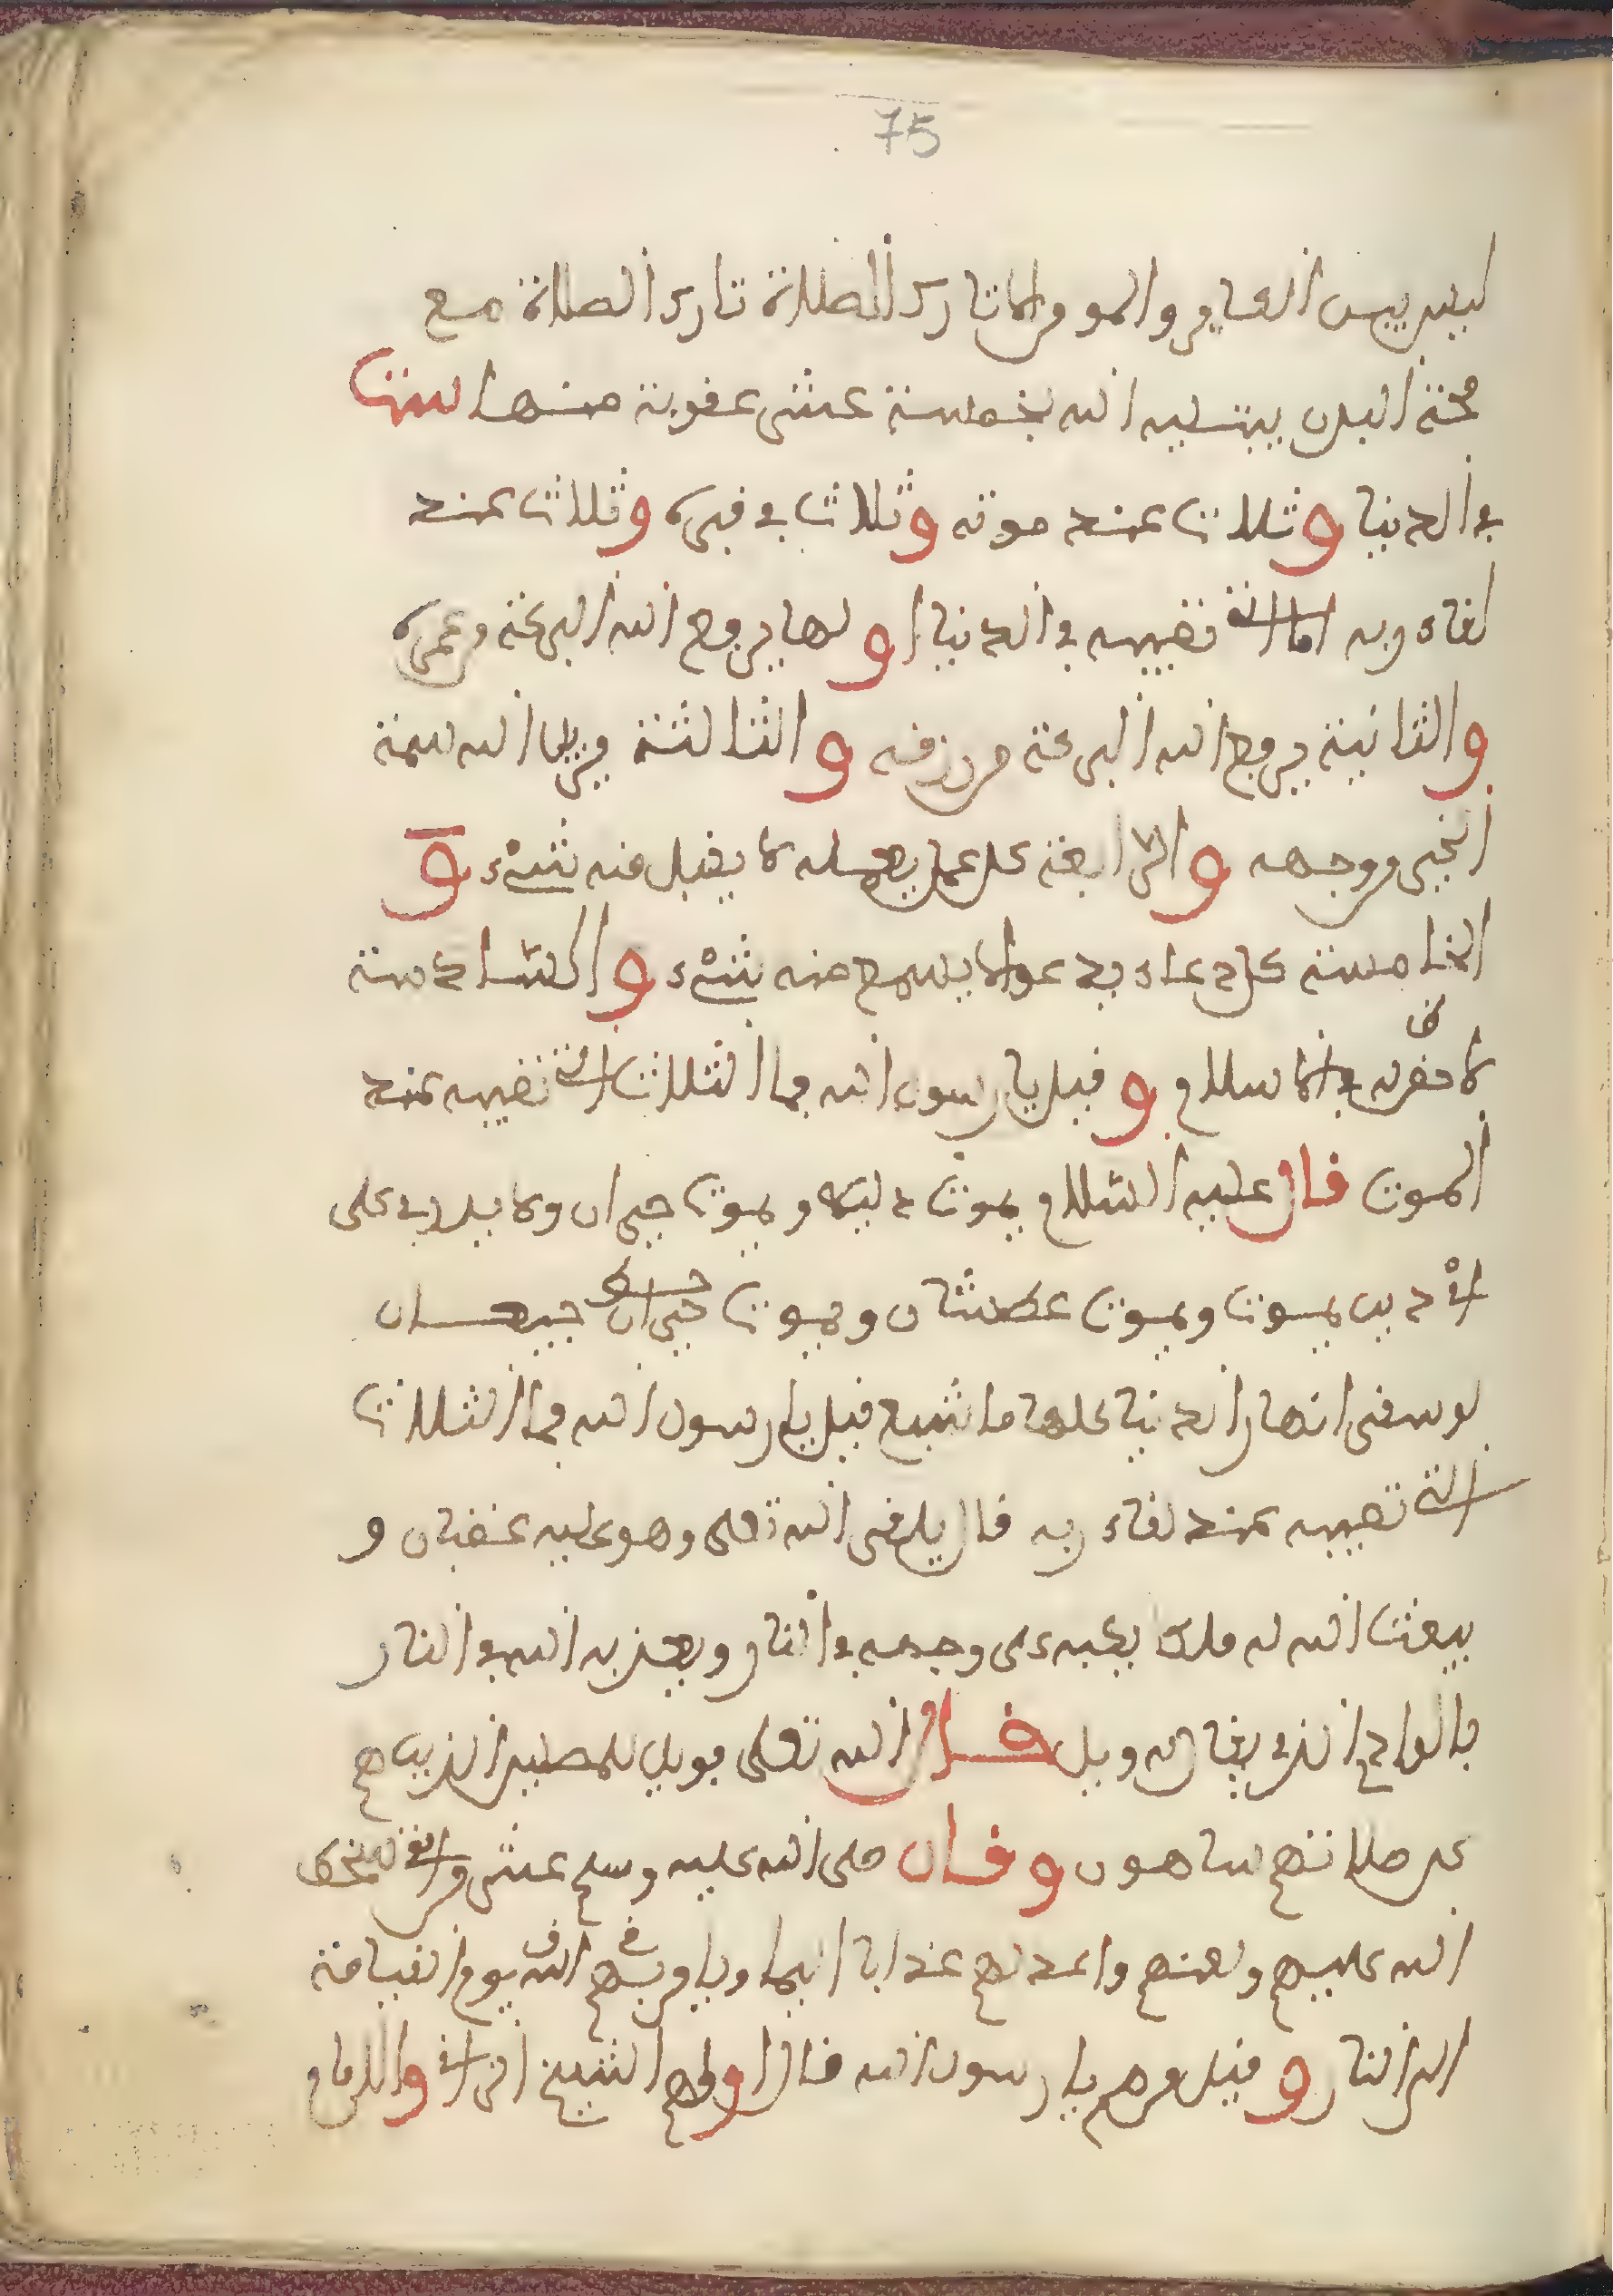 75
ليس بين الكافر والمومن الا تارك الصلاة تارك الصلاة مع
صحة البدن يبتليه الله بخمسة عشر عقوبة منها ست
في الدنيا وثلاث عند موته وثلاث في قبره وثلاث عند
لقاء ربه اما التي تصيبه في الدنيا اولها يرفع الله البركة من عمره
والثانية يرفع الله البركة من رزقه والثالثة يزيل الله سمة
الخير من وجهه والرابعة كل عمل يعمله لا يقبل منه شيء و
الخامسة كل دعاء يدعوا لا يسمع منه شيء والسادسة
لا حق له في الاسلام وقيل يا رسول الله فما الثلاث التي تصيبه عند
الموت قال عليه السلام يموت ذليلا ويموت حيران ولا يدري على
اي دين يموت ويموت عطشان ويموت جيعان
لو سقي انهار الدنيا كلها ما شبع قيل يا رسول الله فما الثلاث
التي تصيبه عند لقاء ربه قال يلقى الله تعلى وهو عليه غضبان و
يبعث الله له ملك يكبه على وجهه في النار ويعذبه الله في النار
بالواد الذي يقال له ويل قال الله تعلى فويل للمصلين الذين هم
عن صلاتهم ساهون وقال صلى الله عليه وسلم عشر من امتي سخط
الله عليهم ولعنهم واعد لهم عذابا اليما ويامر بهم الله يوم القيامة
الى النار وقيل من هم يا رسول الله قال اولهم الشيخ الزاني والامام